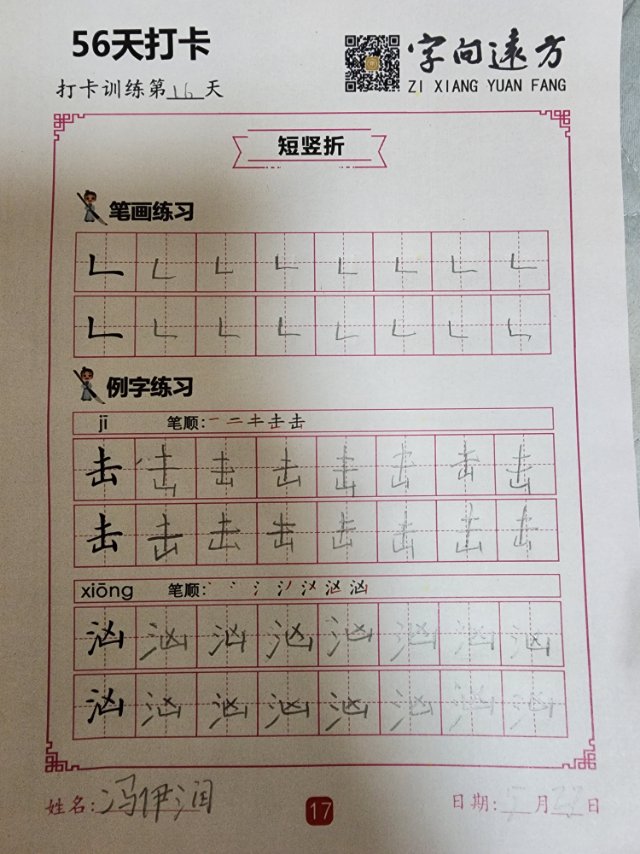 56天打卡
字向远方
ZI XIANG YUAN FANG
打卡训练第16天
短竖折
笔画练习
𠃊 𠃊 𠃊 𠃊 𠃊 𠃊 𠃊 𠃊
𠃊 𠃊 𠃊 𠃊 𠃊 𠃊 𠃊 𠃊
例字练习
jī 笔顺:一 二 キ 击 击
击 击 击 击 击 击 击 击
击 击 击 击 击 击 击 击
xiōng 笔顺:
汹 汹 汹 汹 汹 汹 汹 汹
汹 汹 汹 汹 汹 汹 汹 汹
姓名:冯伊润
17
日期:5月22日